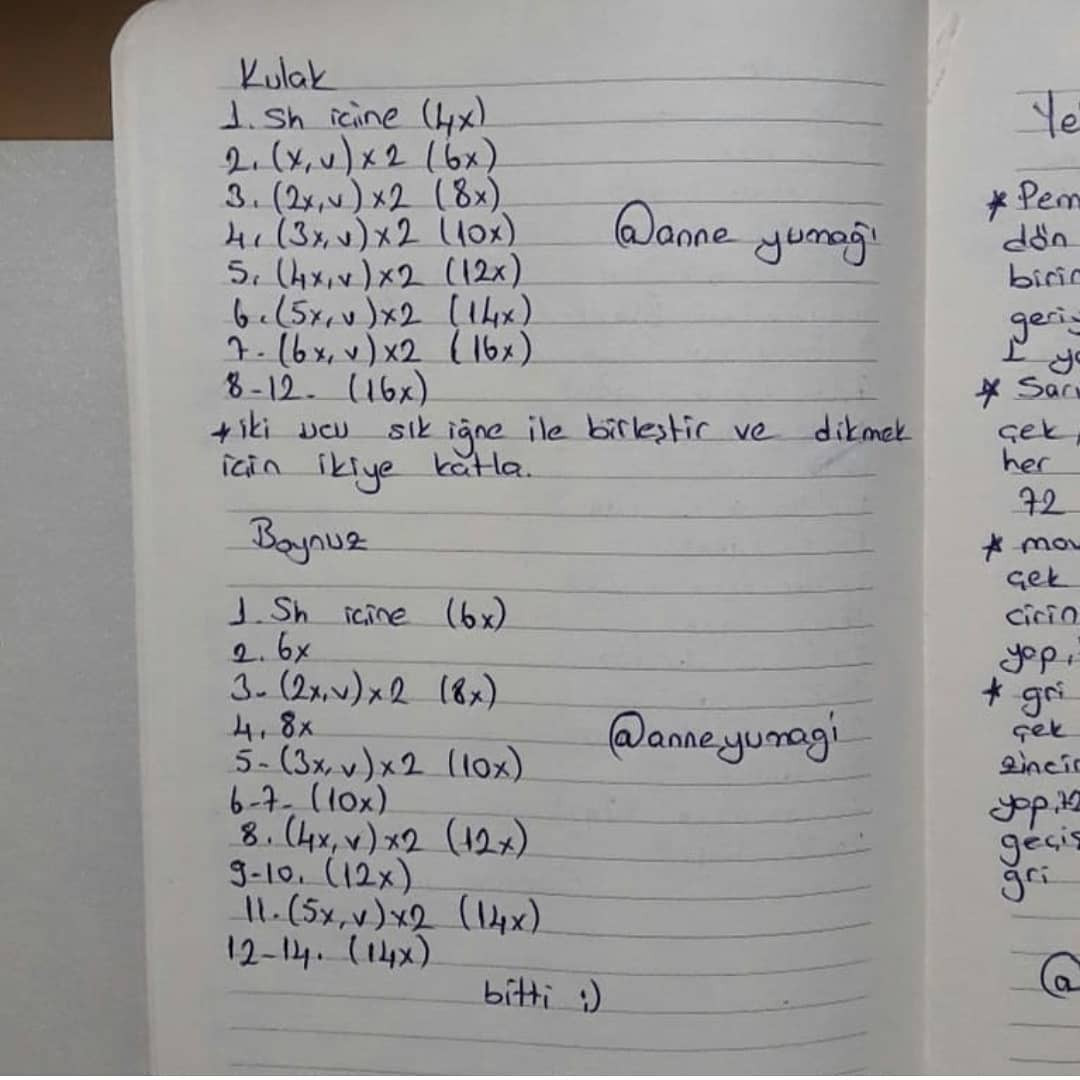 Kulak
1. Sh içine (4x)
2. (x,v)x2 (6x)
3. (2x,v)x2 (8x)
4. (3x,v)x2 (10x)
@anne yumağı
5. (4x,v)x2 (12x)
6. (5x,v)x2 (14x)
7- (6x,v)x2 (16x)
8-12- (16x)
*iki ucu sık iğne ile birleştir ve dikmek
için ikiye katla.
Boynuz
1. Sh içine (6x)
2. 6x
3- (2x,v)x2 (8x)
4. 8x
@anneyumagi
5- (3x,v)x2 (10x)
6-7- (10x)
8. (4x,v)x2 (12x)
9-10. (12x)
11. (5x,v)x2 (14x)
12-14. (14x)
bitti :)
Ye
* Pem
dön
birin
geriy
1 ya
* Sarı
çek,
her
72
* mav
çek
cirin
yap,
* gri
çek
zincir
yap,72
geçiş
gri
@